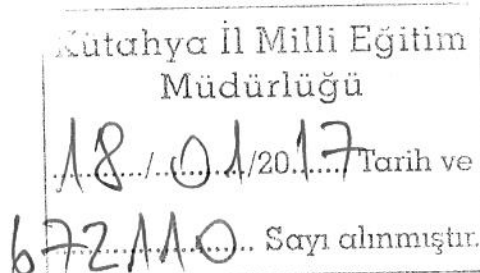 Kütahya İl Milli Eğitim
Müdürlüğü
18/01/2017 Tarih ve
672110 Sayı alınmıştır.